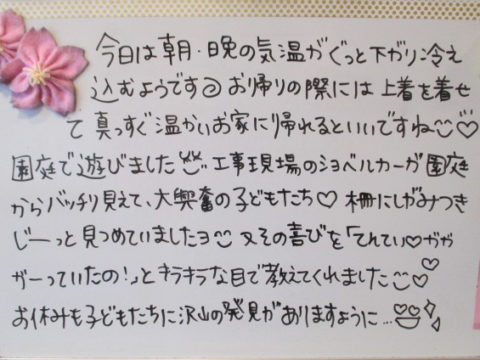 今日は朝・晩の気温がぐっと下がり冷え
込むようです お帰りの際には上着を着せ
て真っすぐ温かいお家に帰れるといいですね♡
園庭で遊びました 工事現場のショベルカーが園庭
からバッチリ見えて、大興奮の子どもたち♡ 柵にしがみつき
じーっと見つめていましたヨ 又その喜びを「てんてい♡ガガ
ガーっていたの!」とキラキラな目で教えてくれました♡
お休みも子どもたちに沢山の発見がありますように…